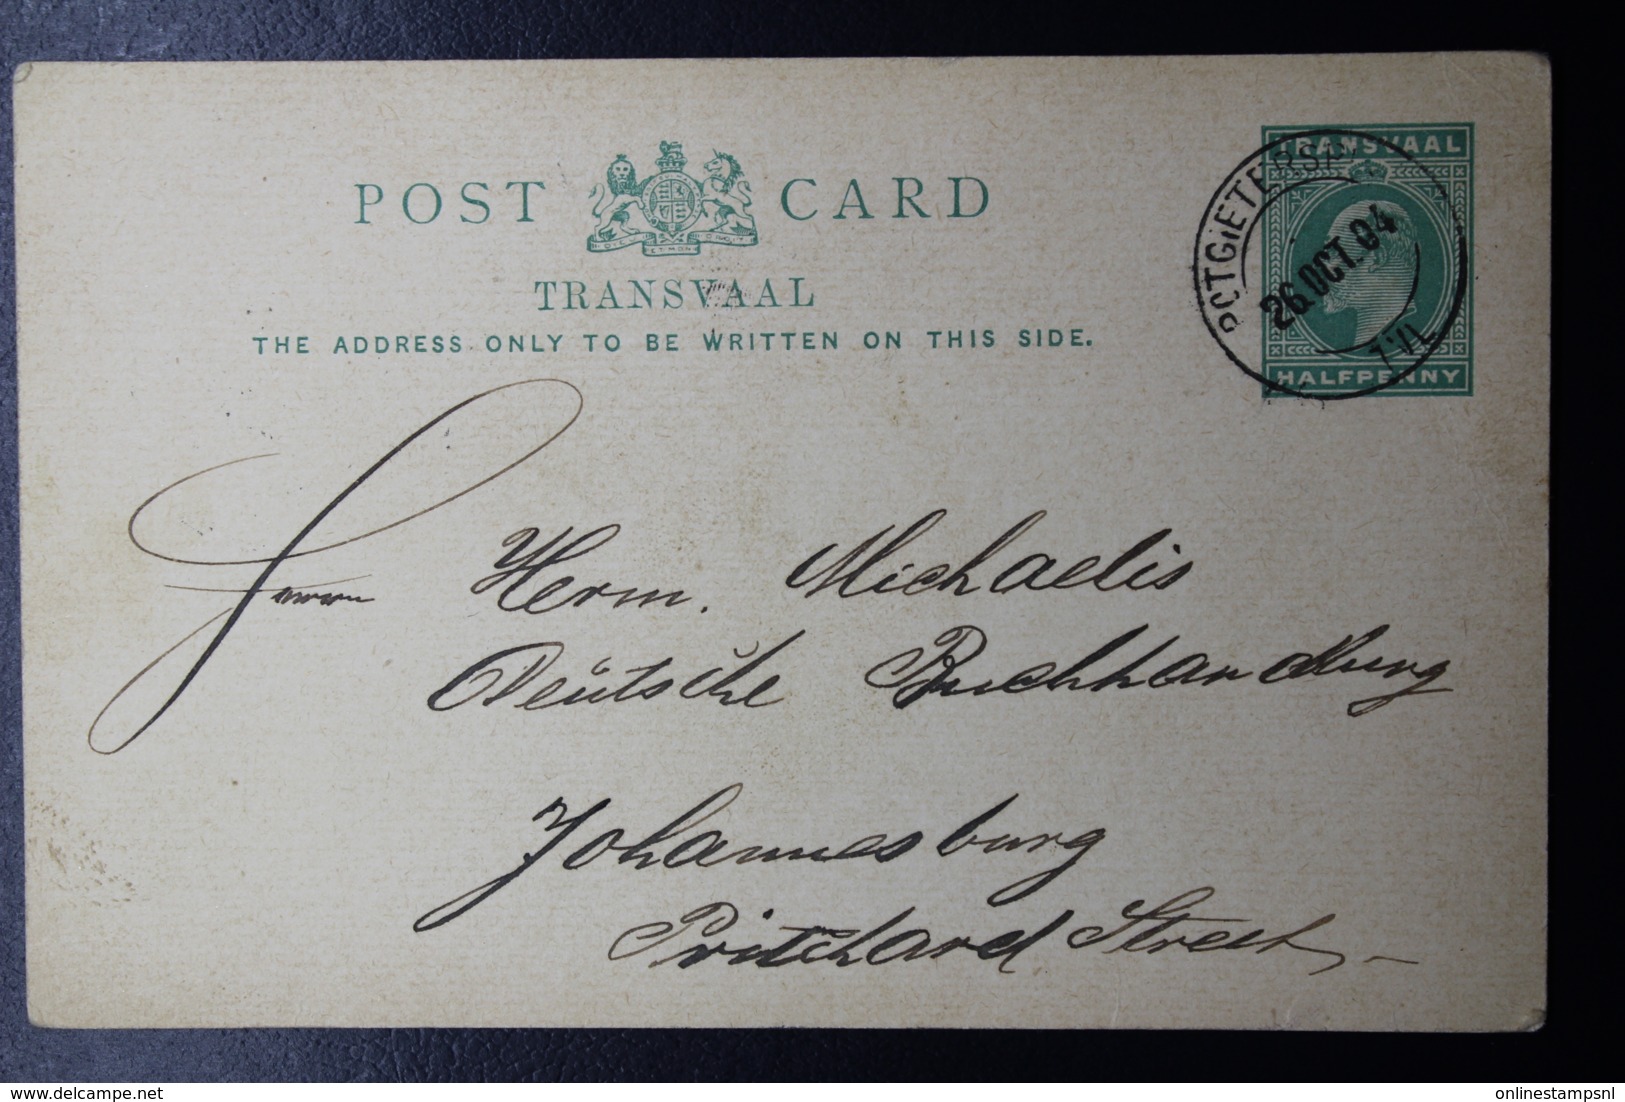 POST CARD
DIEU ET MON DROIT
TRANSVAAL
THE ADDRESS ONLY TO BE WRITTEN ON THIS SIDE.
TRANSVAAL
HALFPENNY
POTGIETERSR
26.OCT.04
TVL
Herrn Herm. Michaelis
Deutsche Buchhandlung
Johannesburg
Pritchard Street
delcampe.net
onlinestampsnl